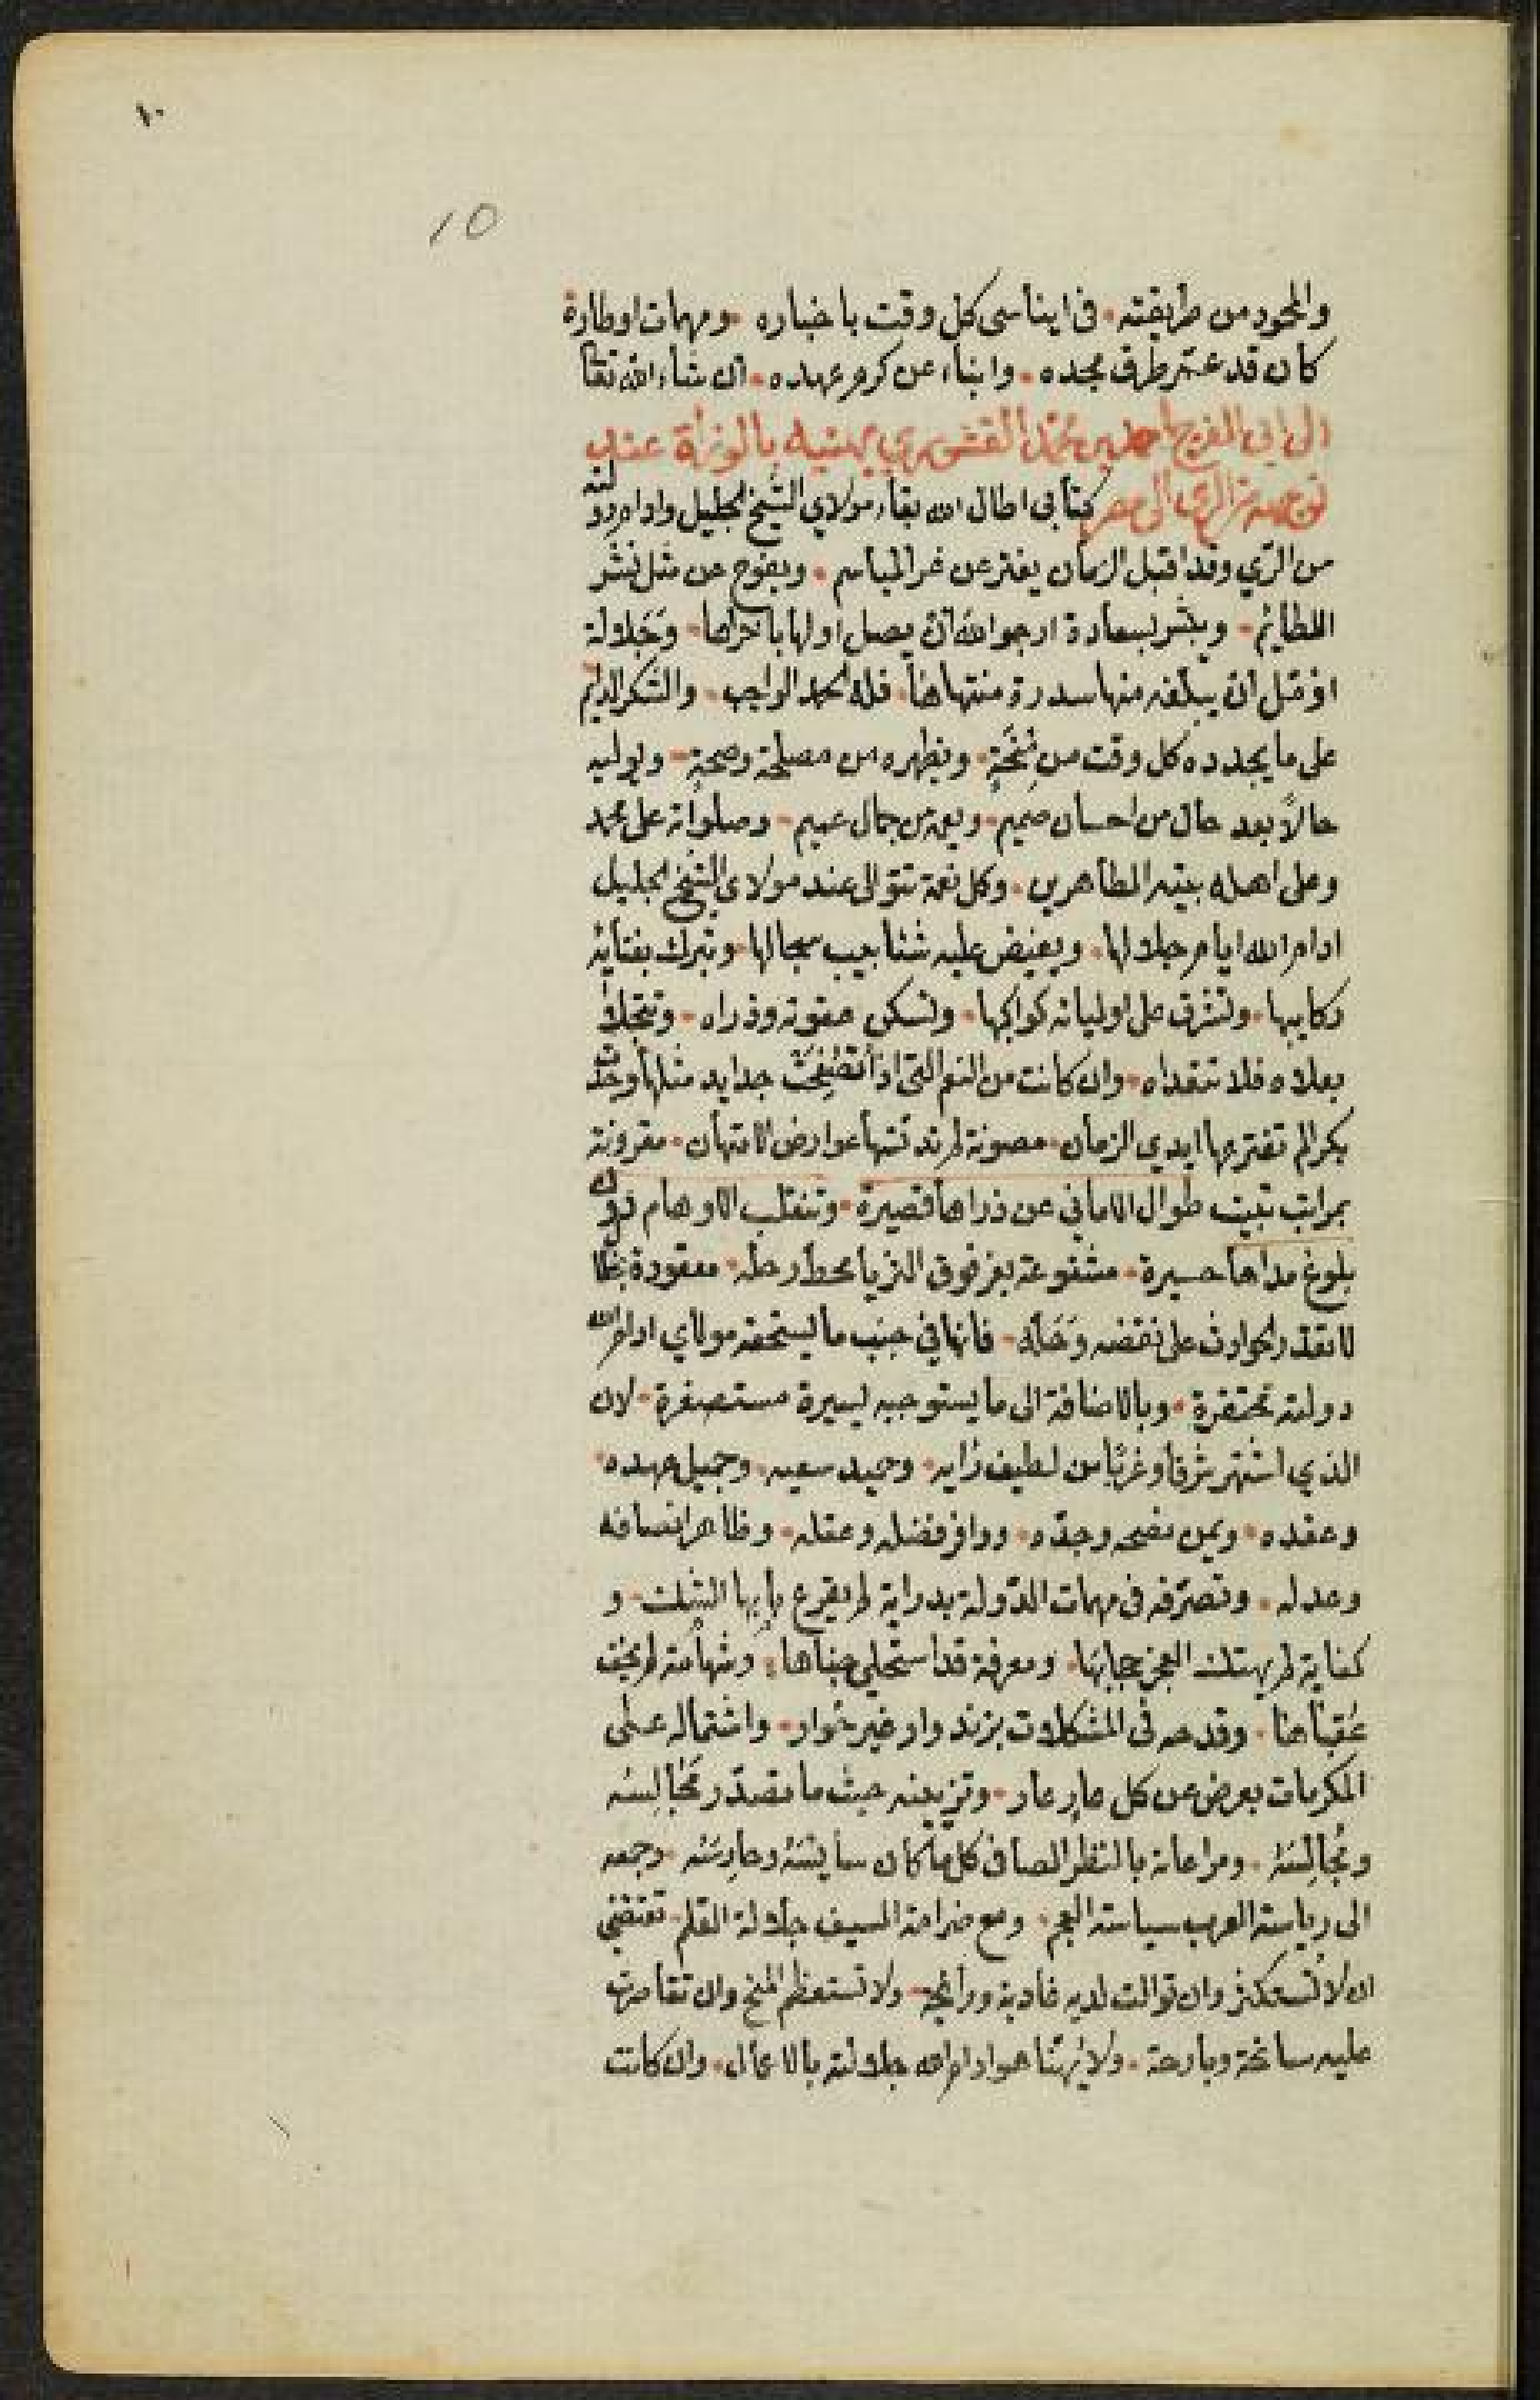 ١٠
10
والمحمود من طريقته ۰ فى ايناسى كل وقت باخباره ۰ ومهمات اوطاره
كان قد عمّر طرق مجده ۰ وابناء عن كرم عهده ۰ ان شاء الله تعا
الى ابى الفرج احمد بن محمّد القشوري يهنيه بالوزاة عند
توجهه من الري الى مصر كتابى اطال الله بقاء مولاي الشيخ الجليل وادام دولته
من الرّي وقد اقبل الزمان يفتر عن غر المباسم ۰ ويفوح عن مثل نشر
اللطائم ۰ ويبشر بسعادة ارجو الله ان يصل اولها باخراها ۰ وجَلالة
اؤمّل ان يبلغه منها سدرة منتهاها ۰ فله الحمد الواجب ۰ والشكر الدايم
على ما يجدده كل وقت من مِنْحَةٍ ۰ ويظهره من مصلحة وصحةٍ ۰ ويوليه
حالاً بعد حال من احسان صميم ۰ ويعزمن جمال عميم ۰ وصلواته على محمد
وعلى اهله بيته الطاهرين ۰ وكل نعمة تتوالى عند مولاي الشيخ الجليل
ادام الله ايام جلالها ۰ ويفيض عليه شئابيب سجالها ۰ وتبرك بفنائه
ركايبها ۰ وتشرق على اوليائه كواكبها ۰ وتسكن عقوته وذراه ۰ وتتجلا
بعلاه فلا تتعداه ۰ وان كانت من النعم التى اذا تُصُفِحَتْ جدايد مثلها وجدت
بكرا لم تفترعها ايدي الزمان ۰ مصونة لم تدنّسها عوارض الامتهان ۰ مقرونة
بمراتب تبيت طوال الامانى عن ذراها قصيرة ۰ وتنقلب الاوهام دون
بلوغ مداها حسيرة ۰ مشفوعة بعز فوق الثريا محط رحله ۰ معقودة بمجد
لا تقدر الحوادث على نقضه وحَلّه ۰ فانها فى جنب ما يستحقه مولاي ادام الله
دولته محتقرة ۰ وبالاضافة الى ما يستوجبه يسيرة مستصغرة ۰ لان
الذي اشتهر شرقًا وغربًا من لطيف رايه ۰ وحميد سعيه ۰ وجميل عهده ۰
وعقده ۰ ويمن نصحه وجدّه ۰ ووافر فضله وعقله ۰ وظاهر انصافه
وعدله ۰ وتصرّفه فى مهمات الدّولة بدراية لم يقرع بابها الشك ۰ و
كفاية لم يهتك العجز حجابها ۰ ومعرفة قد استحلى جناها ۰ وشهامة لم يخف
عُقباها ۰ وقدحه فى المشكلات بزند وار غير خوار ۰ واشتماله على
المكرمات بعرض عن كل عارٍ عار ۰ وتزيينه حيث ما تصدّر مَجَالِسَه
ومُجالِسَهُ ۰ ومراعاته بالنظر الصافى كل ما كان سايسَهُ وحارسَه ۰ وجمعه
الى رياسة العرب سياسة العجم ۰ ومع ضرامة السيف جلالة القلم ۰ تقتضي
ان لا تُستكثر وان توالت لديه غادية ورائحة ۰ ولا تستعظم المنح وان تقاصرت
عليه سانحة وبارحة ۰ ولا يُهنّا هو ادام الله جلالته بالاعمال ۰ وان كانت